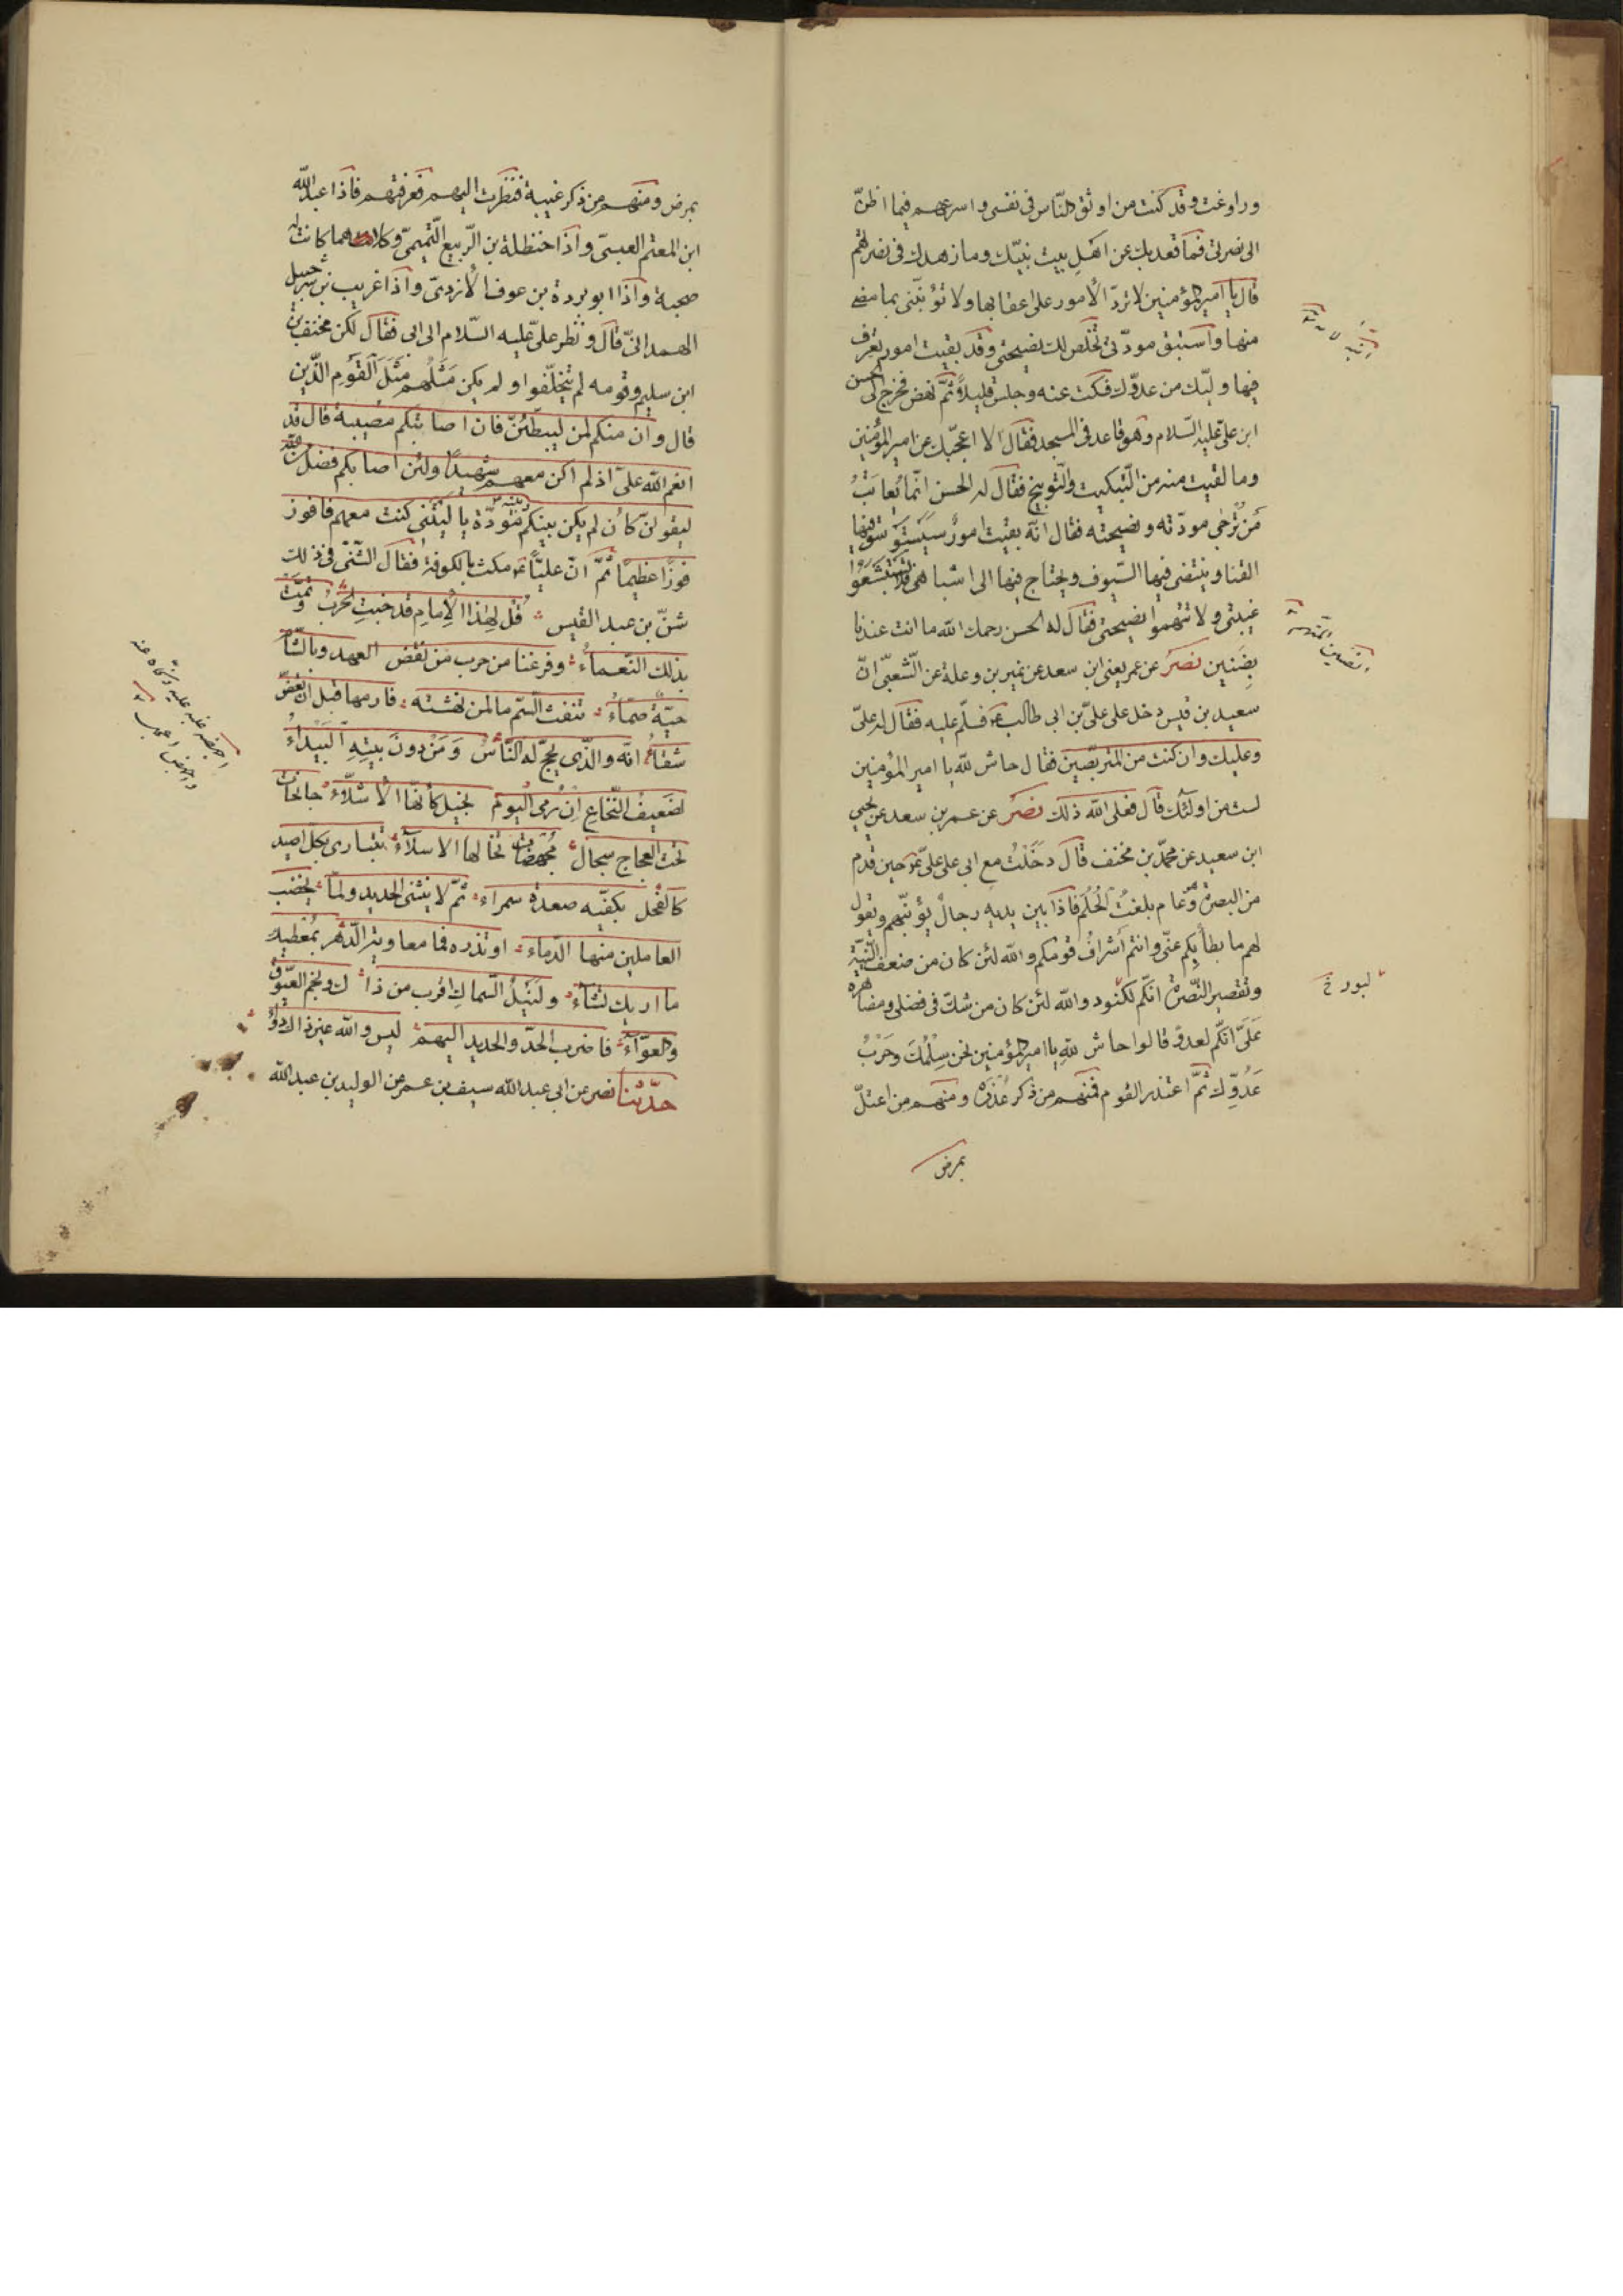 وراوغت وقد كنت من اوثق الناس فى نفسى واسرعهم فيما اظنّ
الى نصرتى فما قعد بك عن اهل بيت نبيّك وما زهدك فى نصرتهم
قال يا امير المؤمنين لا تردّ الأمور على اعقابها ولا تؤنّبنى بما مضى
منها واستبق مودّتى تخلص لك نصيحتى وقد بقيت امور تعرف
فيها وليّك من عدوّك فسكت عنه وجلس قليلاً ثمّ نهض فخرج الى الحسن
ابن علىّ عليه السّلام وهو قاعد فى المسجد فقال الا اعجّبك من امير المؤمنين
وما لقيت منه من التّبكيت والتّوبيخ فقال له الحسن انّما يُعاتَبُ
مَن تُرجٰى مودّته ونصيحته فقال انّه بقيت امورٌ سيستوسق فيها
القنا وينتضى فيها السّيوف ويحتاج فيها الى اشباهى فلا تستبشعوا
غيبتى ولا تتّهموا نصيحتى فقال له الحسن رحمك الله ما انت عندنا
بضَنين نصر عن عمر يعنى ابن سعد عن نمير بن وعلة عن الشّعبىّ انّ
سعيد بن قيس دخل على علىّ بن ابى طالب عم فسلّم عليه فقال له علىّ
وعليك وان كنت من المتربّصين فقال حاش للّه يا امير المؤمنين
لست من اولئك قال فعل الله ذلك نصر عن عمر بن سعد عن يحيى
ابن سعيد عن محمّد بن مخنف قال دخَلْتُ مع ابى على علىّ عم حين قدم
من البصرة وهو عام بلغتُ الحُلُم فاذا بين يديه رجالٌ يؤنّبهم ويقول
لهم ما بطأ بكم عنّى وانتم اَشرافُ قومكم والله لئن كان من ضعف النّيّة
وتقصير النّصرة انّكم لكنود والله لئن كان من شكّ فى فضلى ومظاهرة
عَلَىَّ انّكم لعدوّ قالوا حاش للّهِ يا امير المؤمنين نحن سِلْمُكَ وحَرْبُ
عَدُوِّك ثمّ اعتذر القوم فمنهم من ذكر عُذرَه ومنهم من اعتلّ
بمرض
لبور خ
بمرض ومنهم من ذكر غيبة فنظرت اليهم فعرفتهم فاذا عبد الله
ابن المعتم العبسىّ واذا حنظلة بن الرّبيع التّميمىّ وكلاهما كانت له
صحبة واذا ابو بردة بن عوف الأزدىّ واذا غريب بن شرحبيل
الهمدانىّ قال ونظر علىّ عليه السّلام الى ابى فقال لكن مخنف بن
ابن سليم وقومه لم يتخلّفوا ولم يكن مَثَلُهم مَثَلَ القَوْمِ الّذين
قال وان منكم لمن ليبطّئنّ فان اصابتكم مصيبة قال قد
انعم الله علىّ اذ لم اكن معهم شهيدًا ولئن اصابكم فضل من الله
ليقولنّ كأن لم يكن بينكم وبينه مودّة يا ليتنى كنت معهم فافوز
فوزًا عظيمًا ثمّ انّ عليّاً عم مكث بالكوفة فقال الشّنّى فى ذلك
شنّ بن عبد القيس قُل لهٰذا الإمامِ قد خبتِ الحربُ وتمّت
بذلك النّعماءُ وفرغنا من حرب من نقض العهد وبالشّام
حيّةٌ صمّاءُ تنفث السّم ما لمن نهشته فارمها قبل ان تعضّ
شفاءُ انّه والّذى يحجّ له النّاسُ وَمَنْ دونَ بيتِهِ البَيْداءُ
لضَعيفُ النّخاعِ اِنْ رُمى اليوم بخيل كأنّها الأشلآءُ جانحات
تحت العجاج سخال مُجهَضات تخالها الاسلآءُ تتبارى بكلّ اصيد
كالفحل بكفّيه صعدة سمراء ثمّ لا ينثنى الحديد ولمّا يخضب
العاملين منها الدّماء او تذره فما معاوية الدّهر بمُعطيك
ما اريك تشآءُ ولَنَيْلُ السّماكِ اقرب من ذا ك ونجم العيّوق
والعوّآءُ فاضرب الحدّ والحديد اليهم ليس والله غير ذاك دوآءُ
حدّثنا نصر عن ابى عبد الله سيف بن عمر عن الوليد بن عبد الله